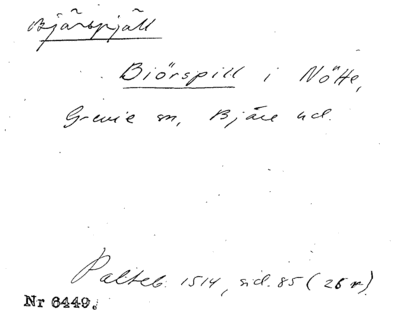 Bjärspjäll
Biörspill i Nötte,
Grevie sn, Bjäre hd.
Palteb. 1514, sid. 85 (26 r).
Nr 6449.